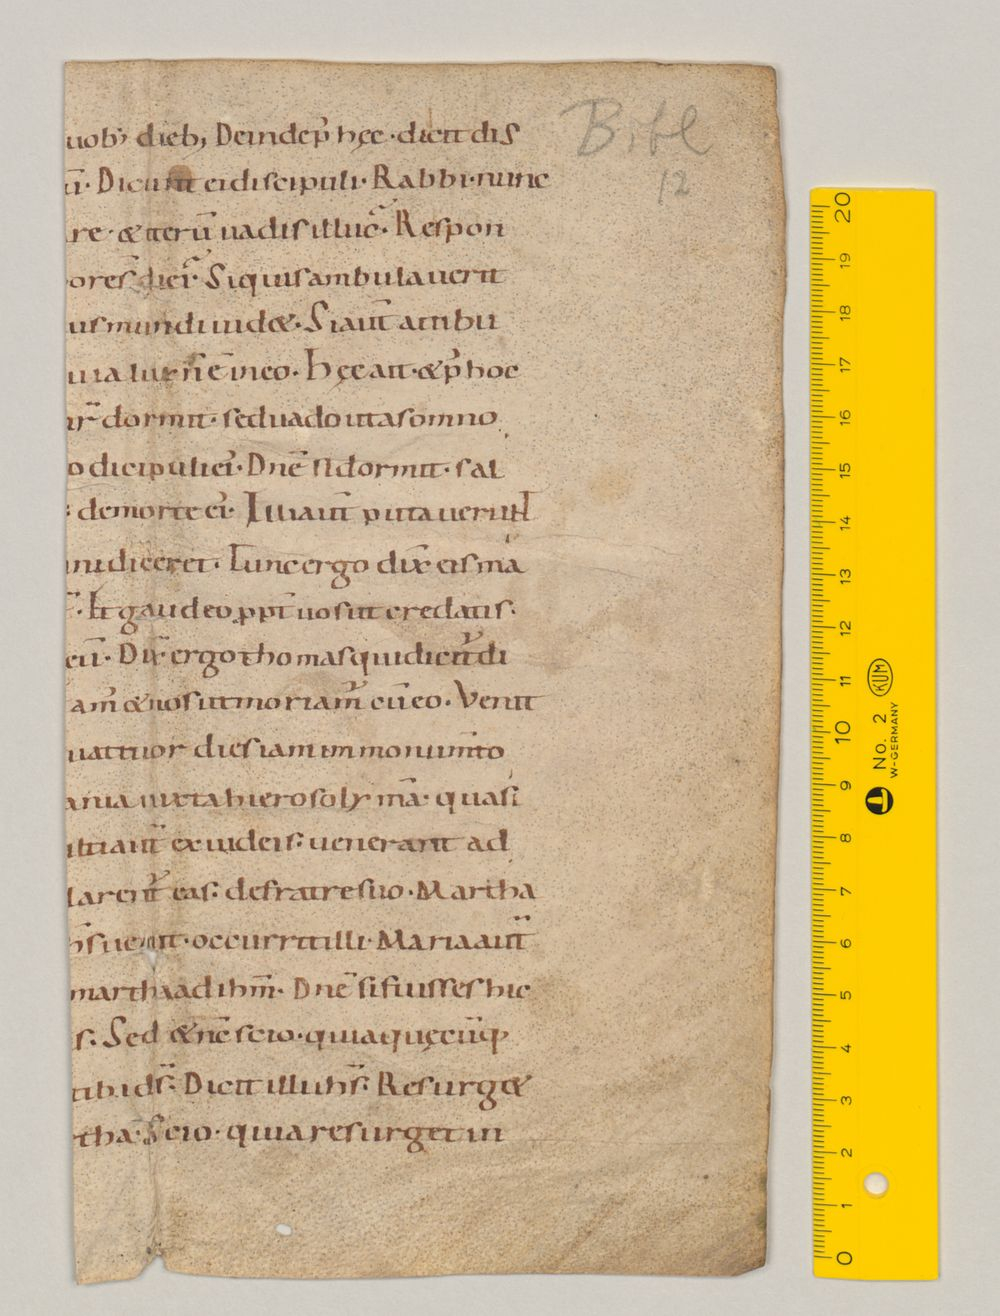 uob; dieb; Deinde p̄ hęc · dicit dis
ū · Dicunt ei discipuli · Rabbi · nunc
re · & iterū uadis illuc · Respon
ores diei · Si quis ambulauerit
us mundi uid& · Si aūt ambu
uia lux ñ ē in eo · Hęc ait · & p̄ hoc
nr̄ dormit · sed uado ut a somno
o dicipuli ei · Dn̄e si dormit · sal
: de morte ei · Illi aūt putauerunt
ni diceret · Tunc ergo dix̄ eis ma
· Et gaudeo ꝓpt̄ uos ut credatis ·
eū · Dix̄ ergo thomas qui dicit̄ di
am̄ & nos ut moriam̄ cū eo · Venit
uattuor dies iam in monum̄to
ania iuxta hierosolymā · quasi
lti aūt ex iudeis : uenerant ad
larent̄ eas : de fratre suo · Martha
ih̄s uenit · occurrit illi · Maria aūt
martha ad ih̄m · Dn̄e si fuisses hic
s : Sed & nc̄ scio · quia quęcūq;
tibi ds̄ : Dicit illi ih̄s : Resurg&
tha · Scio · quia resurget in
Bibl
12
20
19
18
17
16
15
14
13
12
11
10
9
8
7
6
5
4
3
2
1
0
KUM
No. 2
W-GERMANY